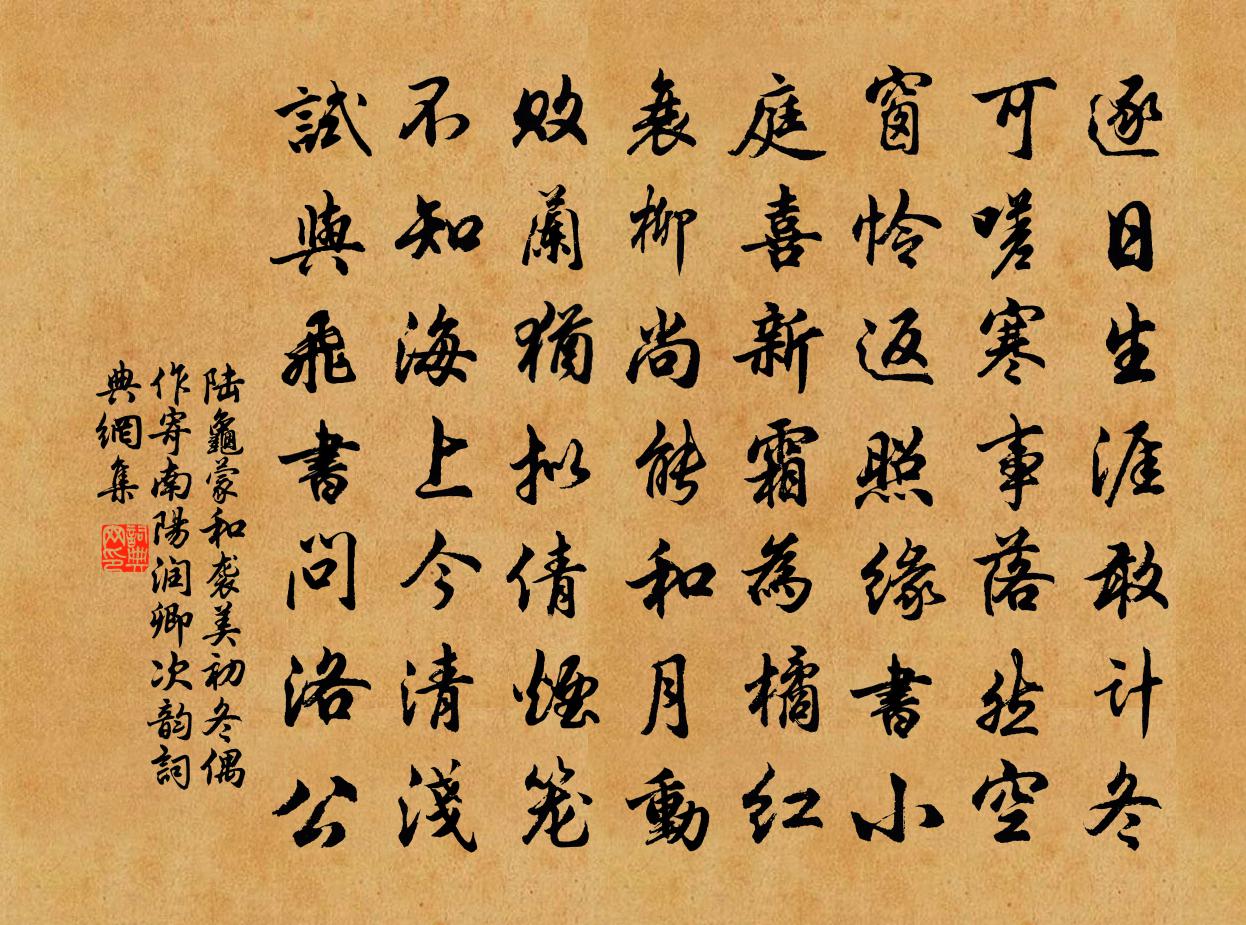 逐日生涯敢計冬
可嗟寒事落然空
窗怜返照緣書小
庭喜新霜為橘红
衰柳尚能和月動
敗蘭猶拟倩煙笼
不知海上今清淺
試與飛書問洛公
陆龜蒙和袭美初冬偶
作寄南陽润卿次韵詞
典網集
詞典網印